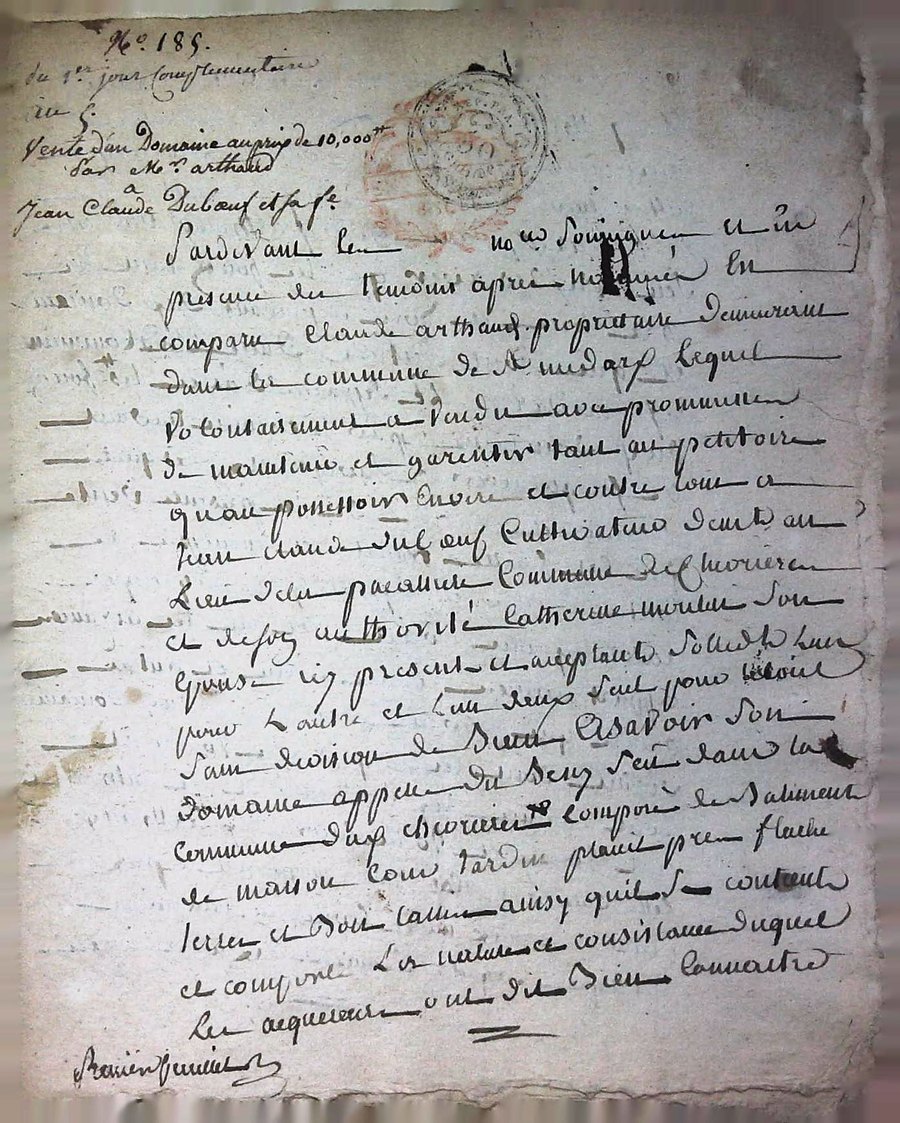 No. 185.
du 1er jour complementaire
an 5.
Vente d'un Domaine au prix de 10,000tt
Par Mr. arthaud
a
Jean Claude Dubœuf et sa fe.
Pardevant les nores Soussignés et en
presence des temoins après nommés En
comparu Claude arthaud propriétaire demeurant
dans la commune de St. medard lequel
volontairement a vendu avec promesse
de maintenir et garentir tant au petitoire
quau possessoire Envers et contre tous a
Jean Claude Dubœuf Cultivateur demt. au
Lieu dela Commune de Chevrieres
et de soy authorisée Catherine moulin Son
Epouse icy present et acceptants Solidt. Lun
pour Lautre et Lun deux Seul pour
Sans division de Bien Asavoir Son
Domaine appellé du Seit dans la
Commune dud. chevrieres composé de Batiments
de maison Cour Jardin prés flache
terres et Bois ainsy quil Se
et comporte Les nature et consistance duquel
Les acquereurs ont dit Bien Connaitre